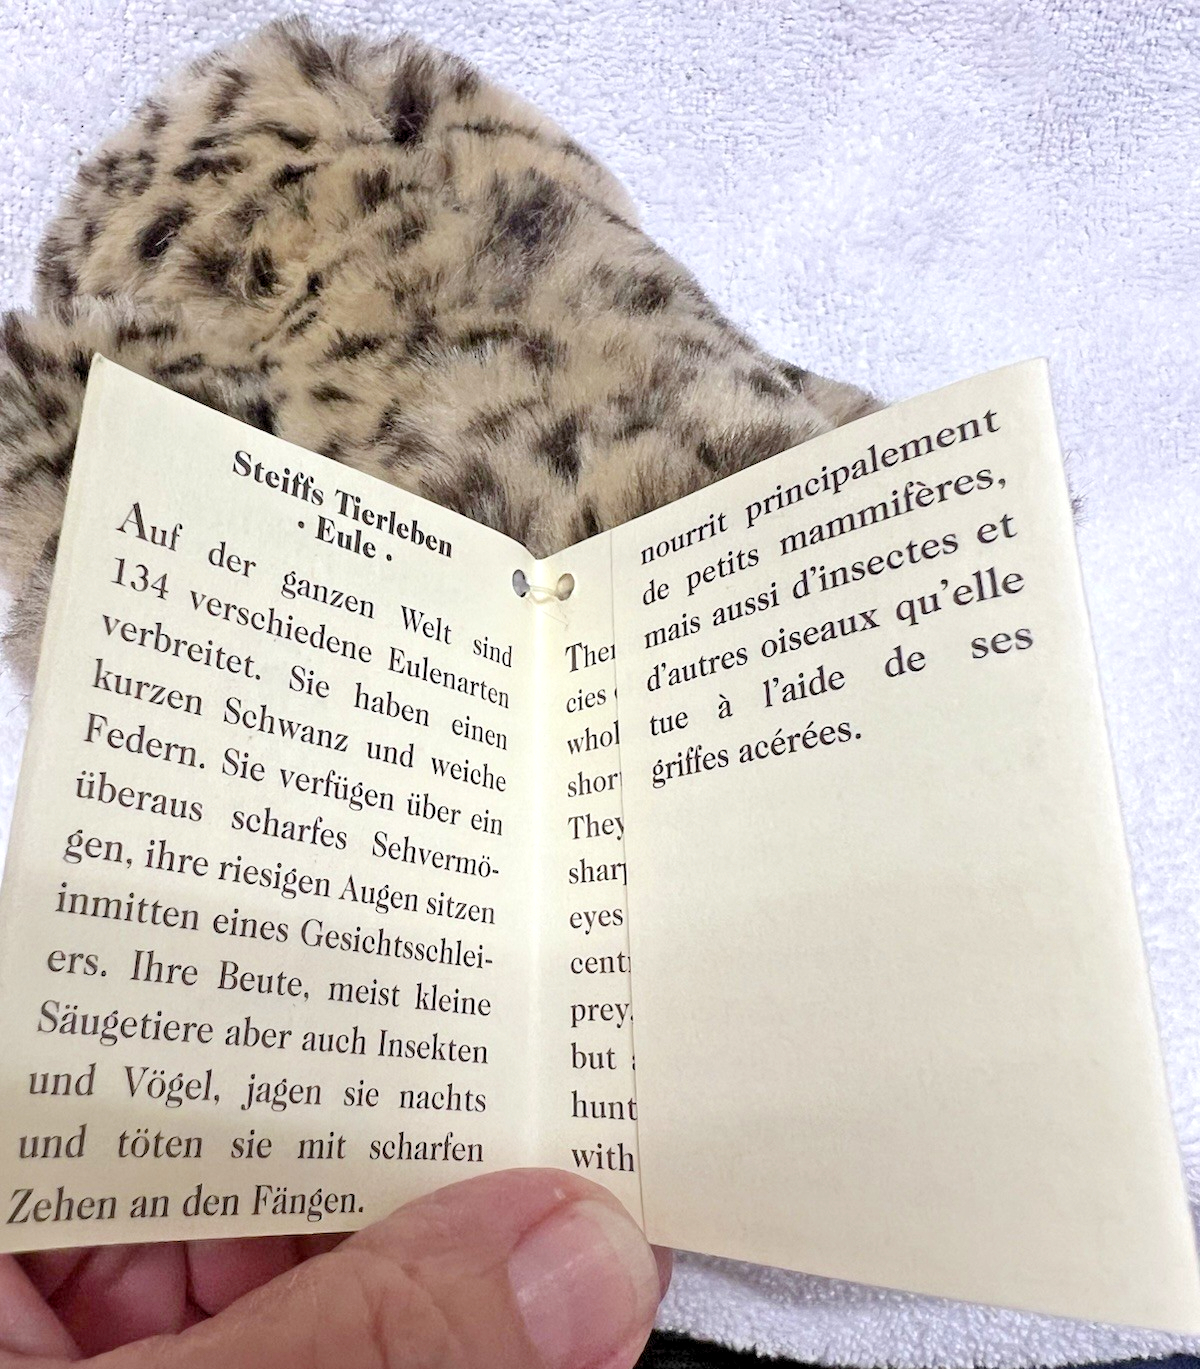 Steiffs Tierleben
· Eule ·
Auf der ganzen Welt sind
134 verschiedene Eulenarten
verbreitet. Sie haben einen
kurzen Schwanz und weiche
Federn. Sie verfügen über ein
überaus scharfes Sehvermö-
gen, ihre riesigen Augen sitzen
inmitten eines Gesichtsschlei-
ers. Ihre Beute, meist kleine
Säugetiere aber auch Insekten
und Vögel, jagen sie nachts
und töten sie mit scharfen
Zehen an den Fängen.
cies
They
eyes
prey.
but
hunt
with
nourrit principalement
de petits mammifères,
mais aussi d'insectes et
d'autres oiseaux qu'elle
tue à l'aide de ses
griffes acérées.